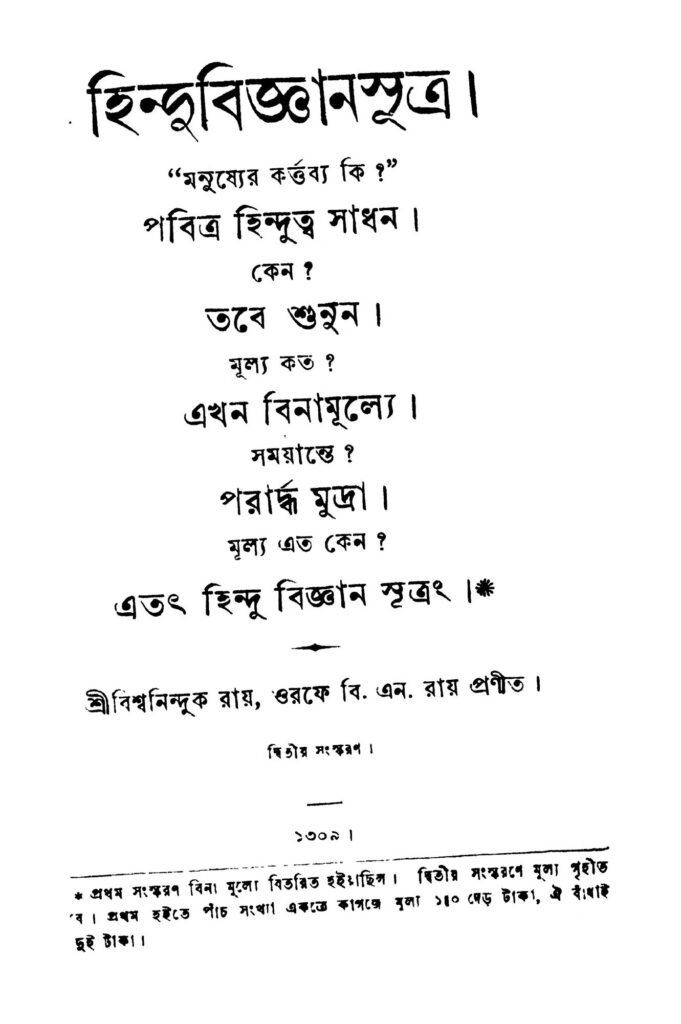 হিন্দুবিজ্ঞানসূত্র।
“মনুষ্যের কর্ত্তব্য কি ?”
পবিত্র হিন্দুত্ব সাধন।
কেন ?
তবে শুনুন।
মূল্য কত ?
এখন বিনামূল্যে।
সময়ান্তে ?
পরার্দ্ধ মুদ্রা।
মূল্য এত কেন ?
এতৎ হিন্দু বিজ্ঞান সূত্রং।*
শ্রীবিশ্বনিন্দুক রায়, ওরফে বি. এন. রায় প্রণীত।
দ্বিতীয় সংস্করণ।
১৩০৯।
* প্রথম সংস্করণ বিনা মূল্যে বিতরিত হইয়াছিল। দ্বিতীয় সংস্করণে মূল্য গৃহীত
ব। প্রথম হইতে পাঁচ সংখ্যা একত্রে কাগজে মূল্য ১॥০ দেড় টাকা, ঐ বাঁধাই
দুই টাকা।।